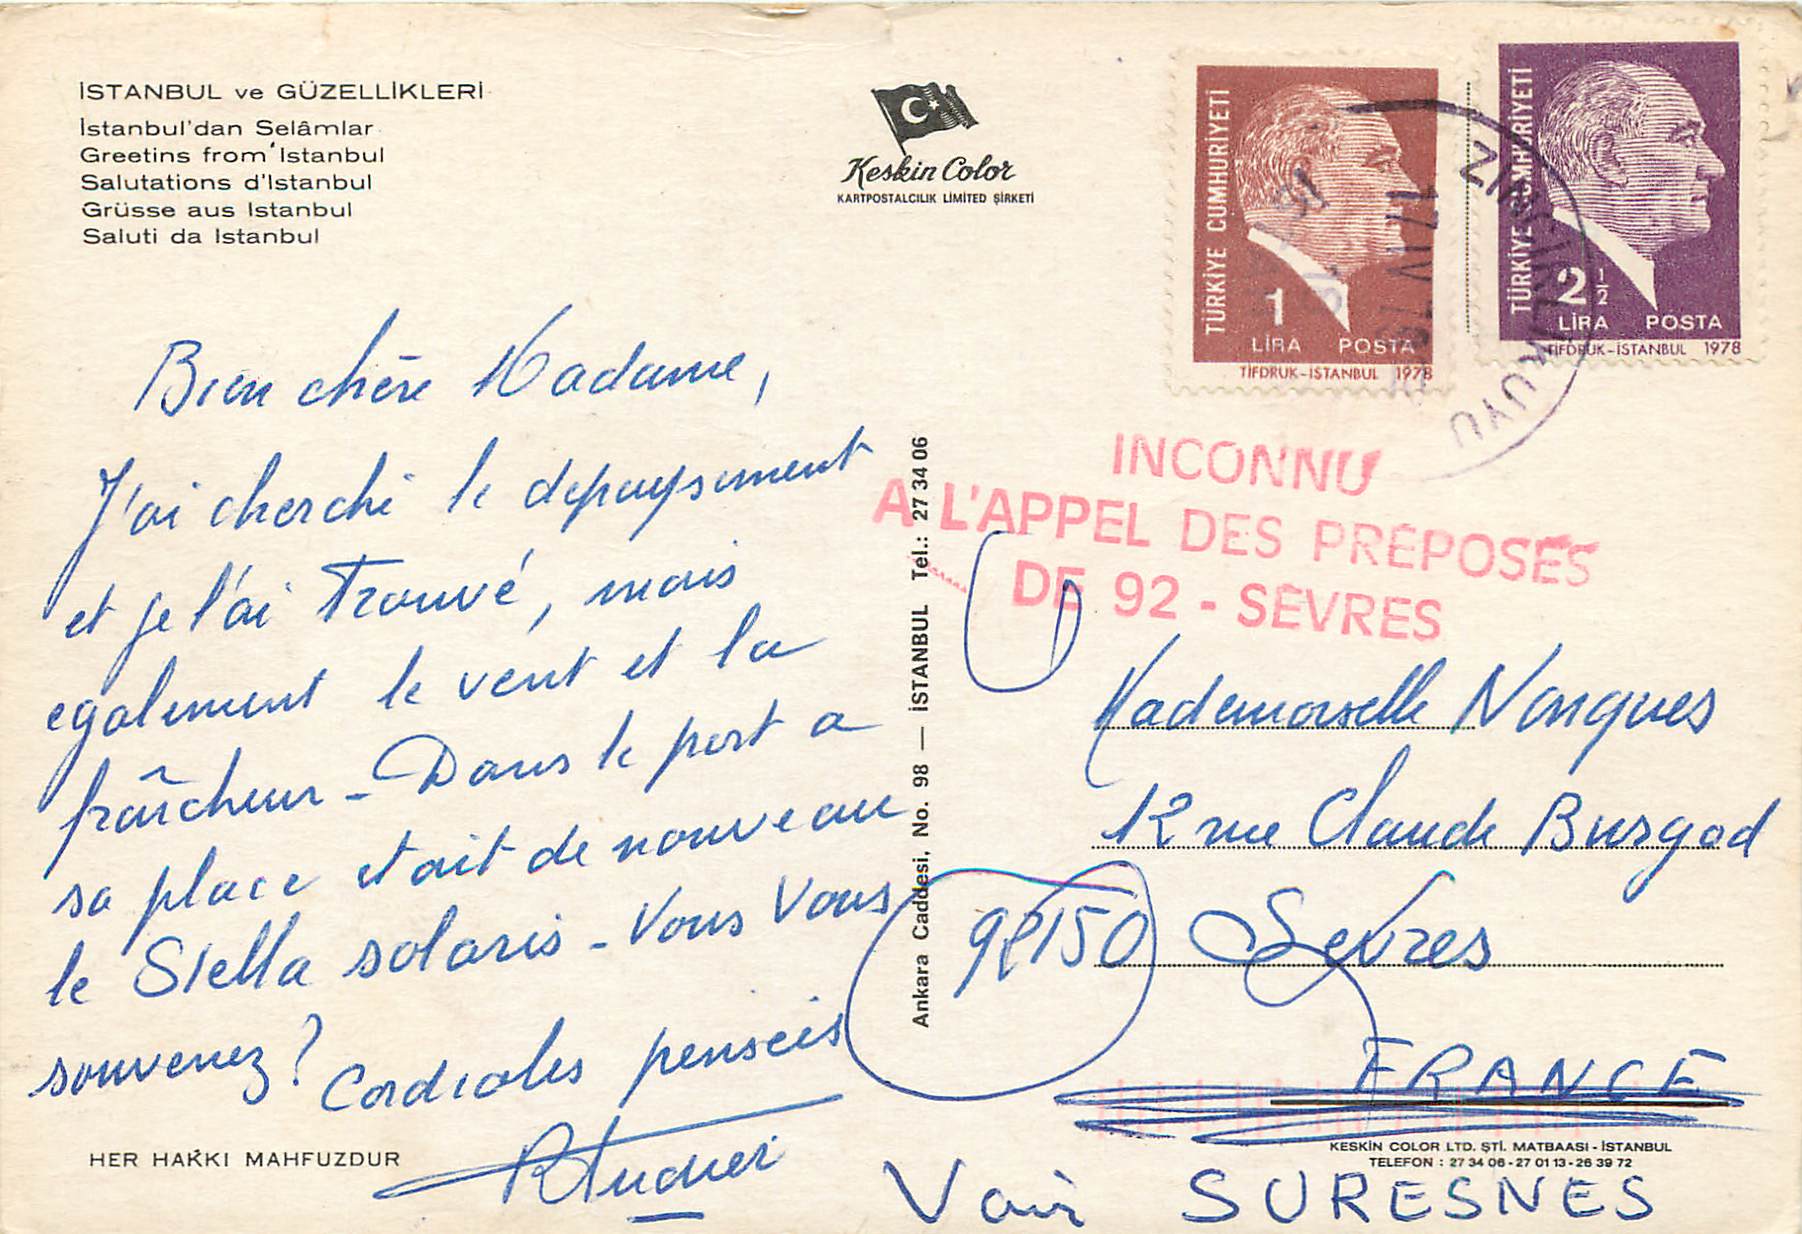 İSTANBUL ve GÜZELLİKLERİ
İstanbul'dan Selâmlar
Greetins from İstanbul
Salutations d'Istanbul
Grüsse aus Istanbul
Saluti da Istanbul
Keskin Color
KARTPOSTALCILIK LİMİTED ŞİRKETİ
TÜRKİYE CUMHURIYETİ
1
LİRA POSTA
TİFDRUK-İSTANBUL 1978
TÜRKİYE CUMHURIYETİ
2 1/2
LİRA POSTA
TİFDRUK-İSTANBUL 1978
ZİNCİRLİKUYU
17 IV 79
INCONNU
A L'APPEL DES PRÉPOSÉS
DE 92 - SÈVRES
Bien chère Madame,
J'ai cherché le depaysement
et je l'ai trouvé, mais
egalement le vent et la
fraîcheur - Dans le port a
sa place etait de nouveau
le Stella solaris - Vous Vous
souvenez? Cordiales pensées
Ankara Caddesi, No. 98 — İSTANBUL Tel.: 27 34 06
Mademoiselle
12 rue Claude
92150 Sevres
FRANCE
HER HAKKI MAHFUZDUR
KESKİN COLOR LTD. ŞTİ. MATBAASI - İSTANBUL
TELEFON : 27 34 06 - 27 01 13 - 26 39 72
Voir SURESNES